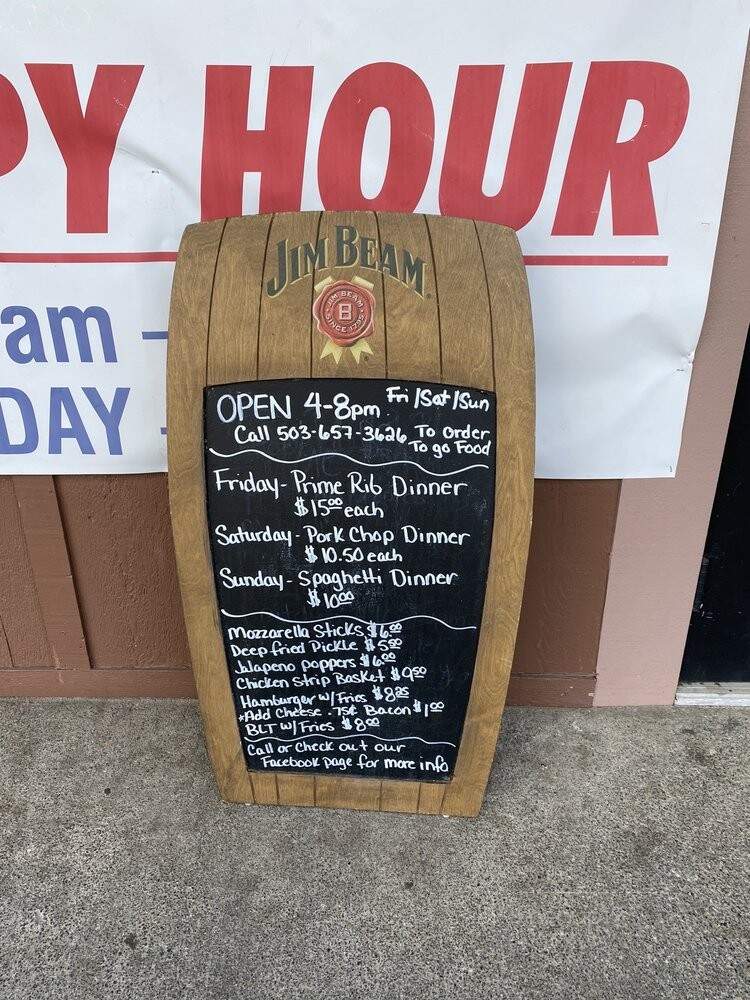 PY HOUR
am -
DAY -
JIM BEAM
JIM BEAM
B
SINCE 1795
OPEN 4-8pm Fri/Sat/Sun
Call 503-657-3626 To order
To go Food
Friday - Prime Rib Dinner
$15.00 each
Saturday - Pork Chop Dinner
$10.50 each
Sunday - Spaghetti Dinner
$10.00
Mozzarella Sticks $6.00
Deep fried Pickle $5.50
Jalapeno poppers $6.00
Chicken Strip Basket $9.50
Hamburger w/Fries $8.25
*Add Cheese .75¢ Bacon $1.00
BLT w/Fries $8.00
Call or Check out our
Facebook page for more info